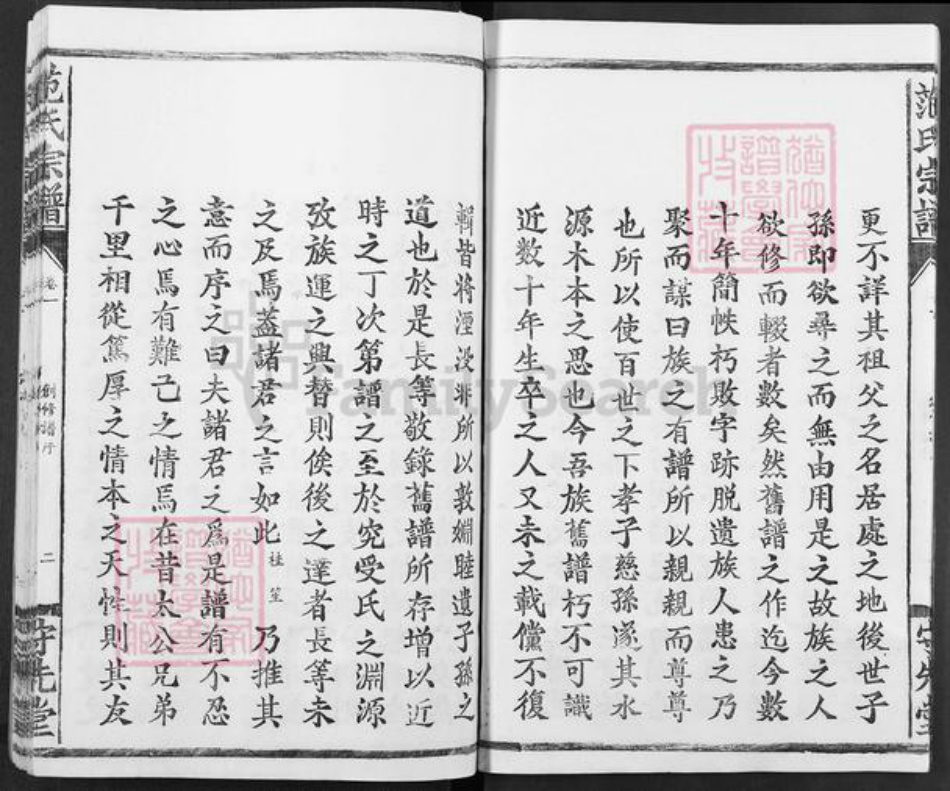 范氏宗譜
更不詳其祖父之名居處之地後世子
孫即欲尋之而無由用是之故族之人
欲修而輟者數矣然舊譜之作迄今數
十年簡帙朽敗字跡脫遺族人患之乃
聚而謀曰族之有譜所以親親而尊尊
也所以使百世之下孝子慈孫遂其水
源木本之思也今吾族舊譜朽不可識
近数十年生卒之人又未之載儻不復
輯皆將湮没非所以敦婣睦遺子孫之
道也於是長等敬錄舊譜所存增以近
時之丁次第譜之至於究受氏之淵源
攷族運之興替則俟後之達者長等未
之及焉蓋諸君之言如此桂笙乃推其
意而序之曰夫諸君之爲是譜有不忍
之心焉有難已之情焉在昔太公兄弟
千里相從篤厚之情本之天性則其友
范氏宗譜
卷一
創修譜序
二
守先堂
FamilySearch